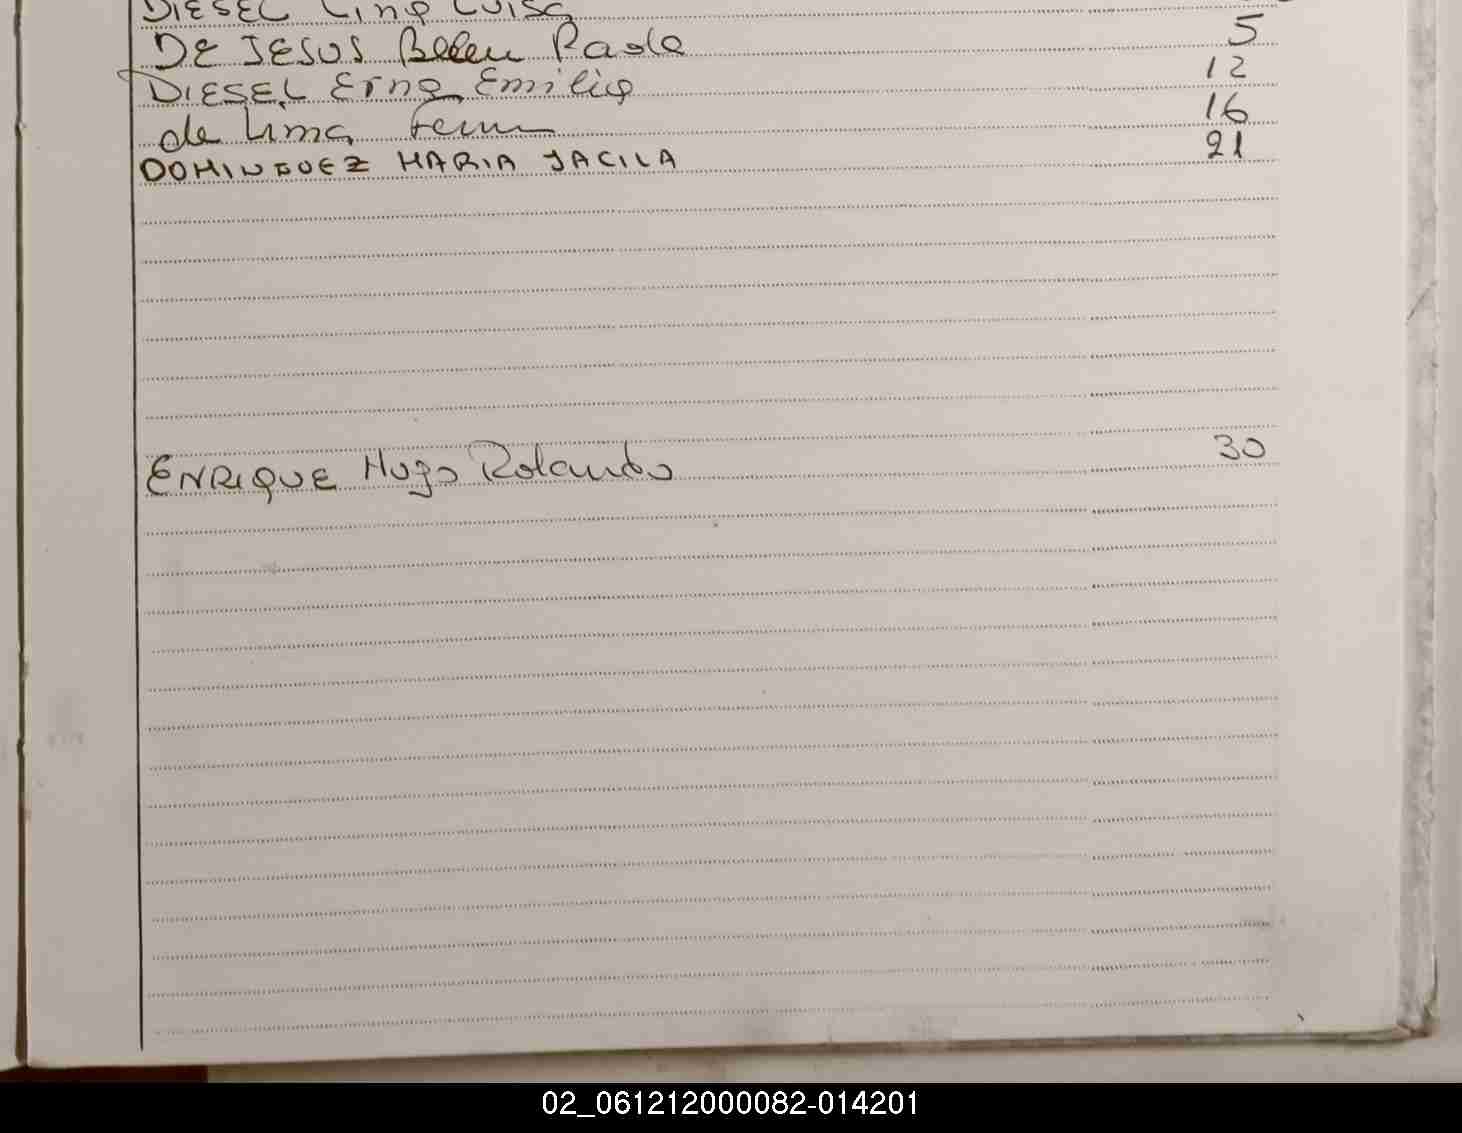 DIESEL Lina Luisa
DE JESUS Belen Paola 5
DIESEL Erna Emilia 12
de Lima 16
DOMINGUEZ MARIA JACILA 21
ENRIQUE Hugo Rolando 30
02_061212000082-014201